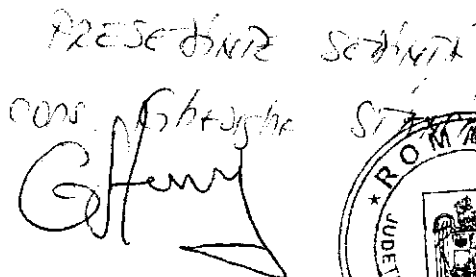 PRESEDINTE SEDINTA
cons. Gheorghe
ROMA
JUDET